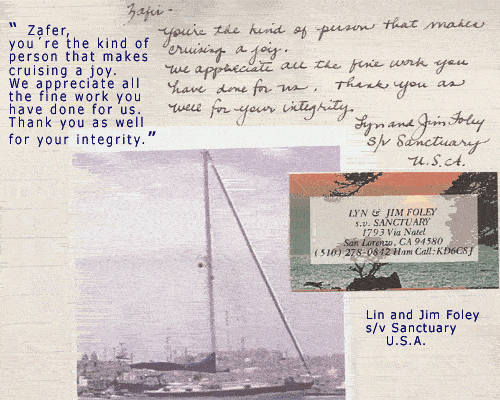 " Zafer,
you're the kind of
person that makes
cruising a joy.
We appreciate all
the fine work you
have done for us.
Thank you as well
for your integrity."
Zafer-
You're the kind of person that makes
cruising a joy.
We appreciate all the fine work you
have done for us. Thank you as
well for your integrity.
Lyn and Jim Foley
s/v Sanctuary
U.S.A.
LYN & JIM FOLEY
s.v. SANCTUARY
1793 Via Natel
San Lorenzo, CA 94580
(510) 278-0842 Ham Call: KD6CSJ
Lin and Jim Foley
s/v Sanctuary
U.S.A.